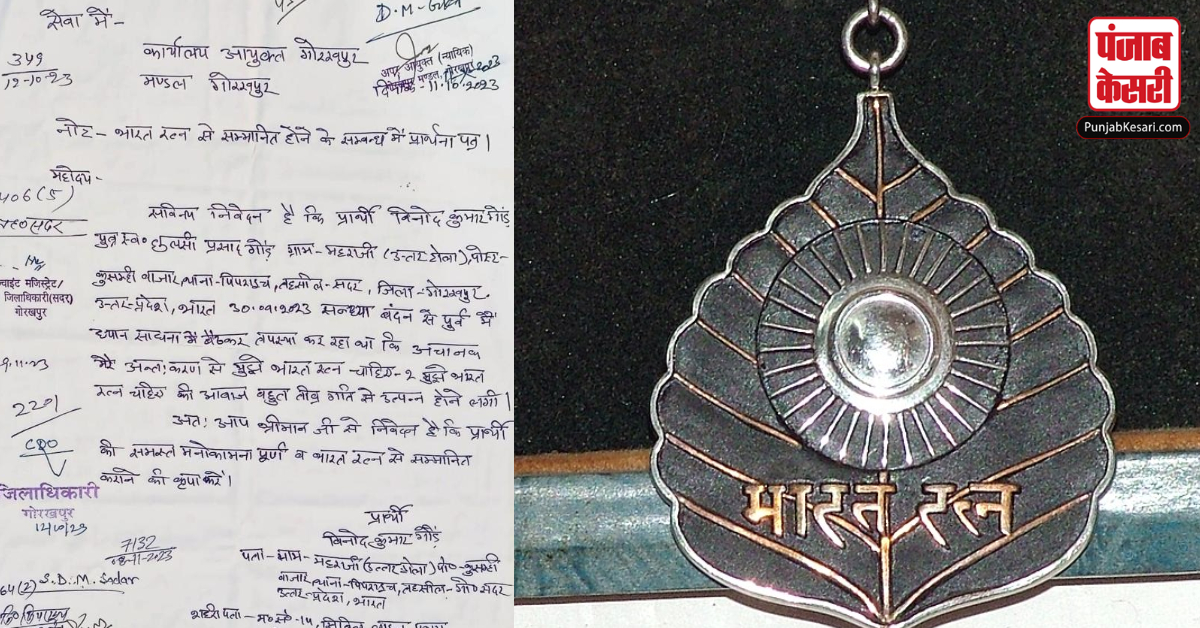 सेवा में-
D.M-
349
12-10-23
कार्यालय आयुक्त गोरखपुर
मण्डल गोरखपुर
अपर आयुक्त (न्यायिक)
मण्डल, गोरखपुर
दिनांक-11.10.2023
नोट- भारत रत्न से सम्मानित होने के सम्बन्ध में प्रार्थना पत्र।
महोदय-
406(5)
सविनय निवेदन है कि प्रार्थी विनोद कुमार गौड़
पुत्र स्व० तुलसी प्रसाद गौड़ ग्राम-महराजी (उत्तर टोला), पोस्ट-
कुसम्ही बाजार, थाना-पिपराइच, तहसील-सदर, जिला-गोरखपुर,
उत्तर-प्रदेश, भारत 30.09.2023 सन्ध्या बंदन से पूर्व में
ध्यान साधना में बैठकर तपस्या कर रहा था कि अचानक
मेरे अन्तःकरण से मुझे भारत रत्न चाहिए-२ मुझे भारत
रत्न चाहिए की आवाज बहुत तीव्र गति से उत्पन्न होने लगी।
अतः आप श्रीमान जी से निवेदन है कि प्रार्थी
की समस्त मनोकामना पूर्ण व भारत रत्न से सम्मानित
कराने की कृपा करें।
ज्वाईंट मजिस्ट्रेट/
जिलाधिकारी(सदर)
गोरखपुर
9.11.23
2201
CRO
जिलाधिकारी
गोरखपुर
प्रार्थी
विनोद कुमार गौड़
7132
08-11-2023
पता- ग्राम- महराजी (उत्तर टोला) पो०-कुसम्ही
बाजार, थाना-पिपराइच, तहसील-गो० सदर
उत्तर-प्रदेश, भारत
64(2) S.D.M. Sadar
शहरी पता- म०सं०-14, सिविल
भारत रत्न
पंजाब
केसरी
PunjabKesari.com